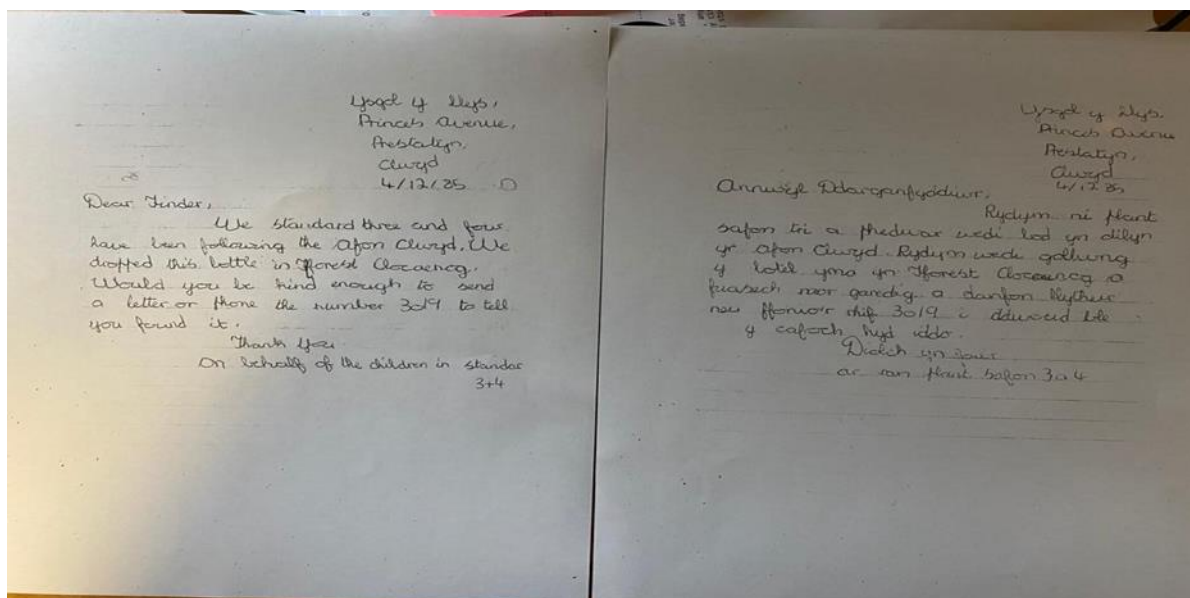 Ysgol y Llys,
Princes Avenue,
Prestatyn,
Clwyd
4/12/85
Dear Finder,
We standard three and four
have been following the Afon Clwyd. We
dropped this bottle in fforest Clocaenog.
Would you be kind enough to send
a letter or phone the number 3019 to tell
you found it.
Thank You
On behalf of the children in standar
3+4
Ysgol y Llys.
Princes Avenue
Prestatyn,
Clwyd
4/12 85
Annwyl Ddarganfyddwr,
Rydym ni plant
safon tri a phedwar wedi bod yn dilyn
yr Afon Clwyd. Rydym wedi gollwng
y botel yma yn fforest Clocaenog a
fuasech mor garedig a danfon llythur
neu ffonio'r rhif 3019 i ddweud ble
y cafoch hyd iddo.
Diolch yn fawr
ar ran plant safon 3 a 4